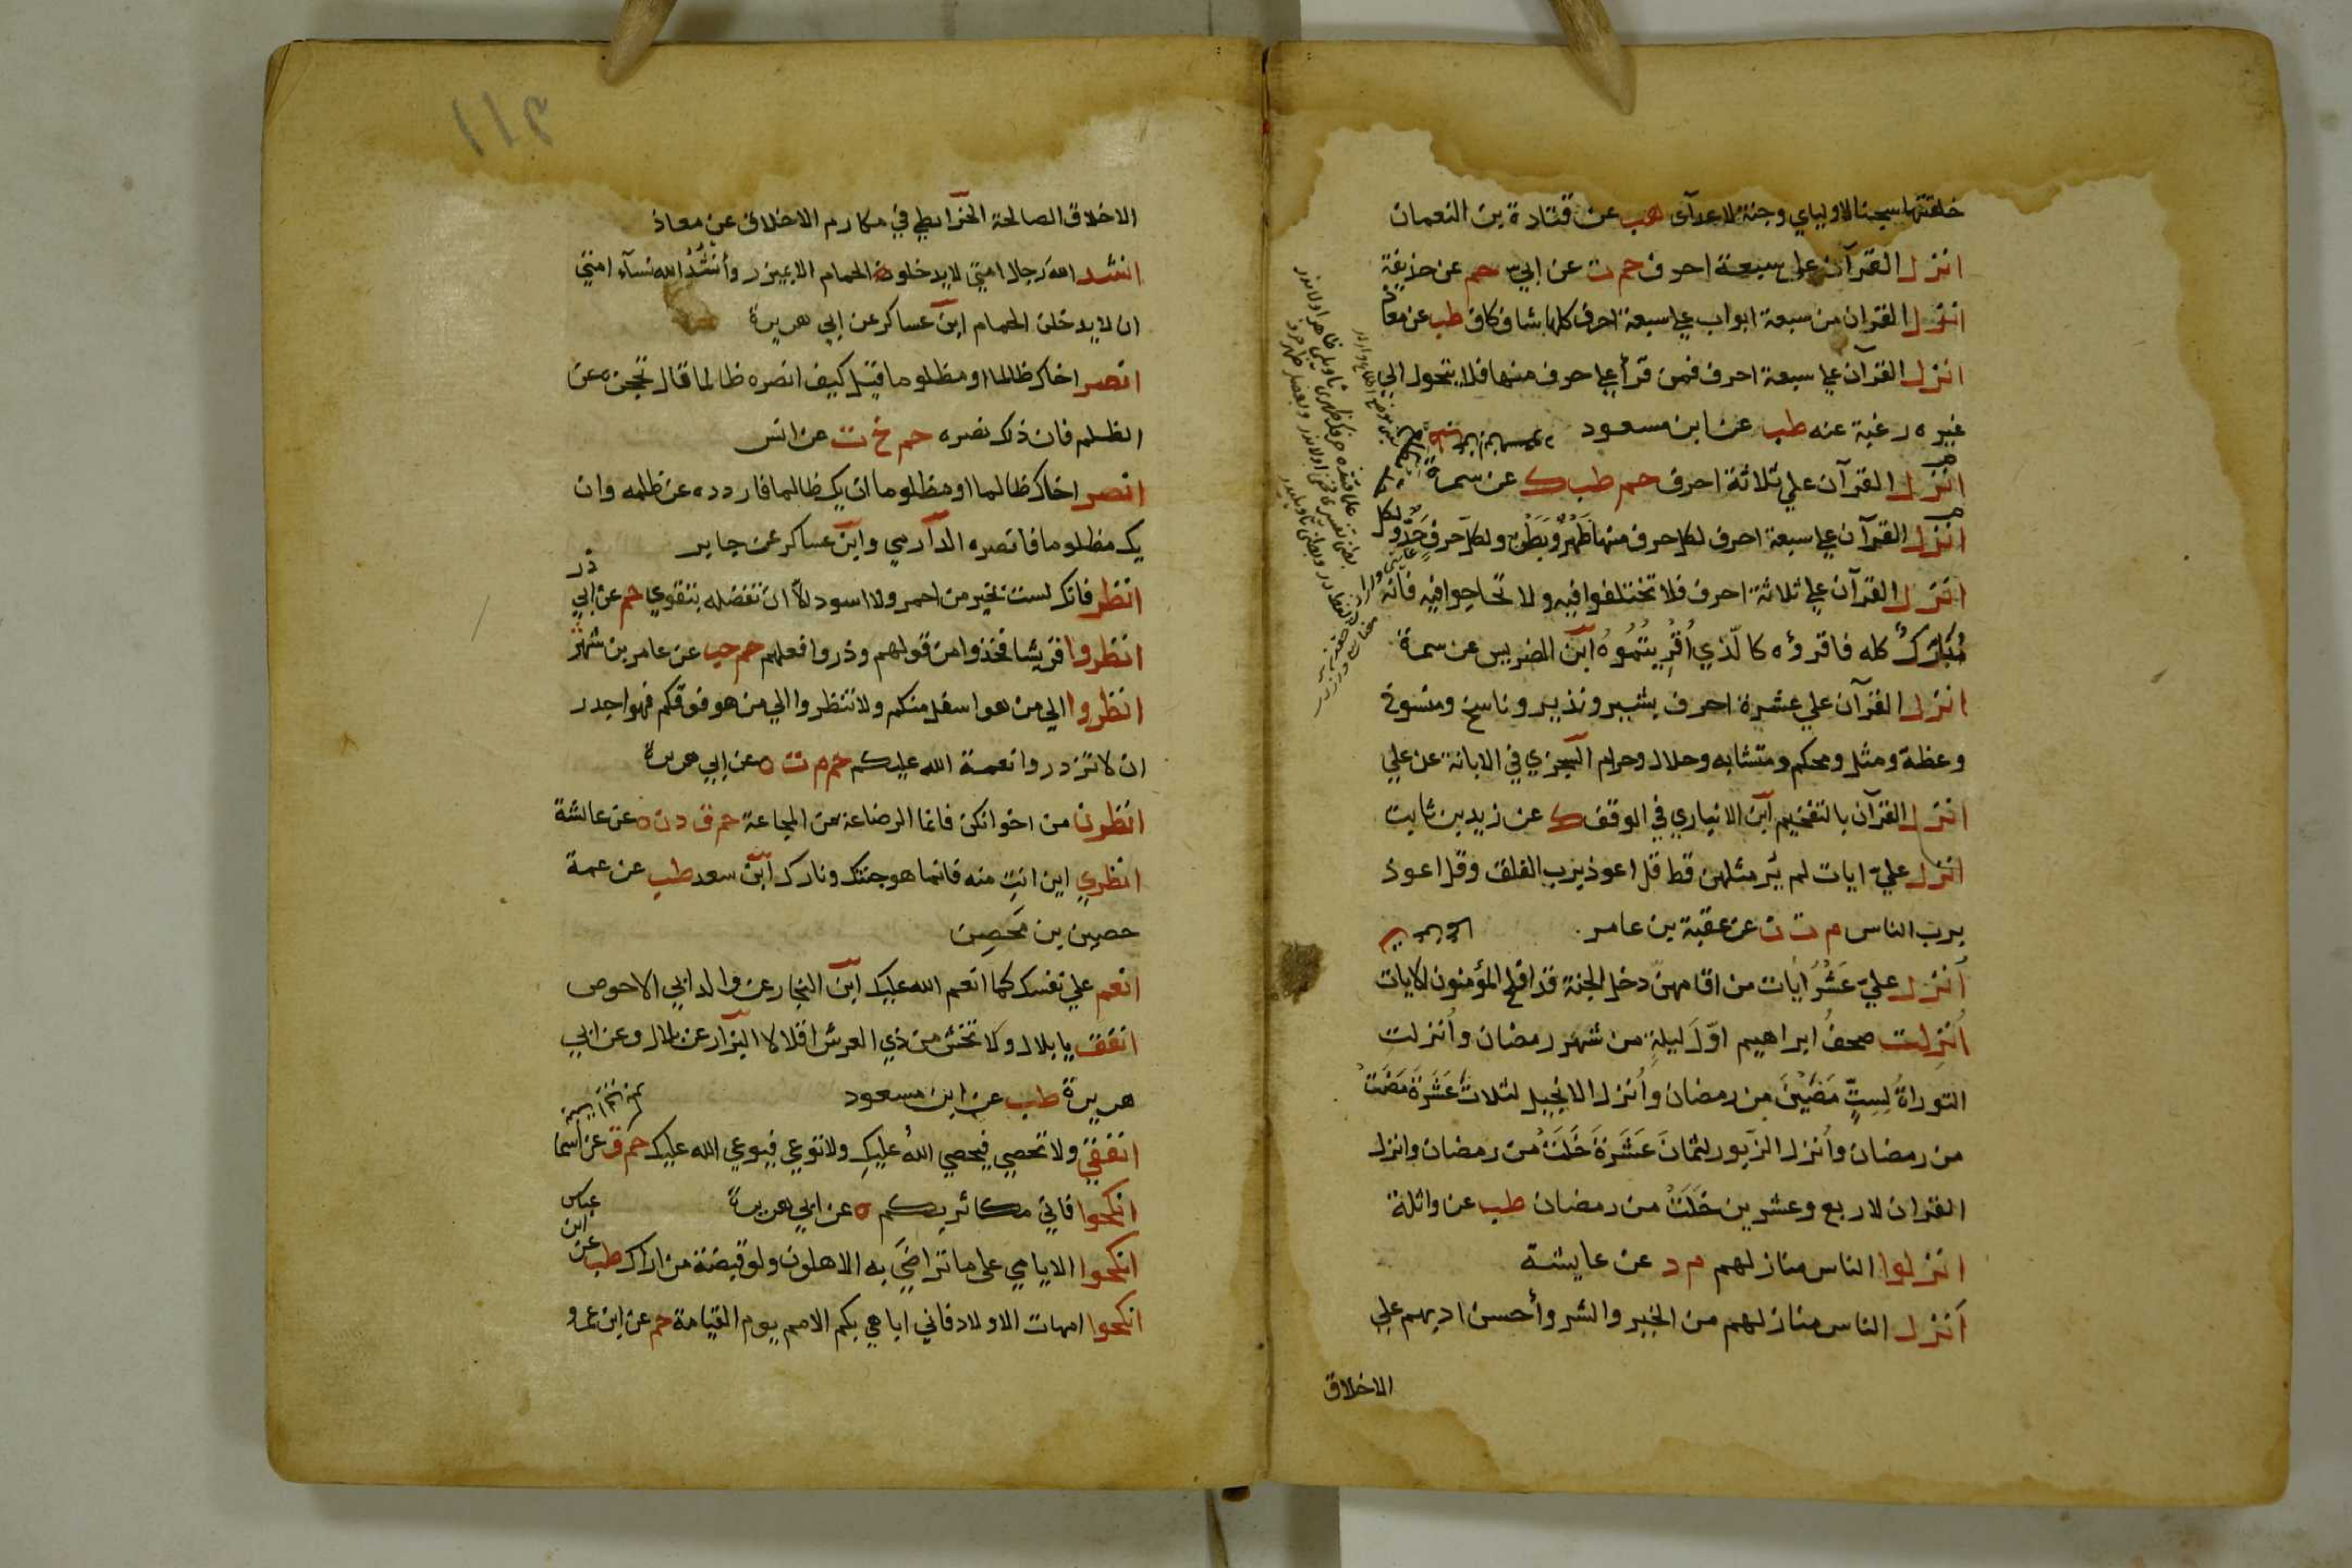 خلقتها سجنا لاوليايي وجنة لاعدآى هب عن قتادة بن النعمان
انزل القرآن علي سبعة احرف حم ت عن ابي حم عن حذيفة
انزل القران من سبعة ابواب علي سبعة احرف كلها شاف كاف طب عن معاذ
انزل القرآن علي سبعة احرف فمن قرأ علي حرف منها فلا يتحول الي
غيره رغبة عنه طب عن ابن مسعود
انزل القرآن علي ثلاثة احرف حم طب ك عن سمرة
انزل القرآن علي سبعة احرف لكل حرف منها ظَهْرٌ وَبَطْنٌ ولكل حرفٍ حَدٌّ ولكل
انزل القرآن علي ثلاثة احرف فلا تختلفوا فيه ولا تحاجوا فيه فانه
مُبَارَكٌ كله فاقرؤه كالّذي اُقْرِيتُمُوهُ ابن الضريس عن سمرة
انزل القرآن علي عشرة احرف بشير ونذير وناسخ ومنسوخ
وعظة ومثل ومحكم ومتشابه وحلال وحرام السجزي في الابانة عن علي
انزل القرآن بالتفخيم ابن الانباري في الوقف ك عن زيد بن ثابت
انزل عليّ ايات لم يُر مثلهن قط قل اعوذ برب الفلق وقل اعوذ
برب الناس م ت ن عن عقبة بن عامر
اُنزل عليّ عَشْرُ ايات من اقامهنّ دخل الجنة قد افلح المؤمنون الايات
اُنزِلت صحفُ ابراهيم اوّلَ ليلةٍ من شهر رمضان وأُنزلتِ
التوراةُ لِسِتٍّ مَضَيْنَ من رمضان وأُنزل الانجيل لثلاث عَشَرَةَ مَضَتْ
من رمضان وأُنزل الزّبور لثمانَ عَشَرَةَ خَلَتْ من رمضان وانزل
القران لاربع وعشرين خَلَتْ من رمضان طب عن واثلة
انزلوا الناس منازلهم م د عن عايشة
اَنزل الناس منازلهم من الخير والشر وأحسن ادبهم علي
الاخلاق
١١٢
الاخلاق الصالحة الخرآيطي في مكارم الاخلاق عن معاذ
انشد الله رجال امتي لا يدخلون الحمام الا بميزر وأَنشُدُ الله نسآء امتي
ان لا يدخلن الحمام ابن عساكر عن ابي هريرة
انصر اخاك ظالما او مظلوما قيل كيف انصره ظالما قال تحجزه عن
الظلم فان ذلك نصره حم خ ت عن انس
انصر اخاك ظالما او مظلوما ان يك ظالما فاردده عن ظلمه وان
يك مظلوما فانصره الدآرمي وابن عساكر عن جابر
انظر فانك لست بخير من احمر ولا اسود الاّ ان تفضله بتقوي حم عن ابي ذر
انظروا قريشا فخذوا من قولهم وذروا فعلهم حم حب عن عامر بن شهر
انظروا الي من هو اسفل منكم ولا تنظروا الي من هو فوقكم فهو اجدر
ان لا تزدروا نعمة الله عليكم حم م ت ه عن ابي هريرة
انظرن من اخوانكن فانما الرضاعة من المجاعة حم ق د ن ه عن عائشة
انظري اين انتِ منه فانما هو جنتك ونارك ابن سعد طب عن عمة
حصين بن مَحصِن
انعم علي نفسك كما انعم الله عليك ابن النجار عن والد ابي الاحوص
انفق يا بلال ولا تخش من ذي العرش اقلالا البزار عن بلال وعن ابي
هريرة طب عن ابن مسعود
انفقي ولا تحصي فيحصي اللهُ عليكِ ولا توعي فيوعي الله عليك حم ق عن أسما
انكحوا فاني مكاثر بكم ه عن ابي هريرة
انكحوا الايامي علي ما تراضَي به الاهلون ولو قبضة من اراك طب عن ابن عباس
انكحوا امهات الاولاد فاني اباهي بكم الامم يوم القيامة حم عن ابن عمرو